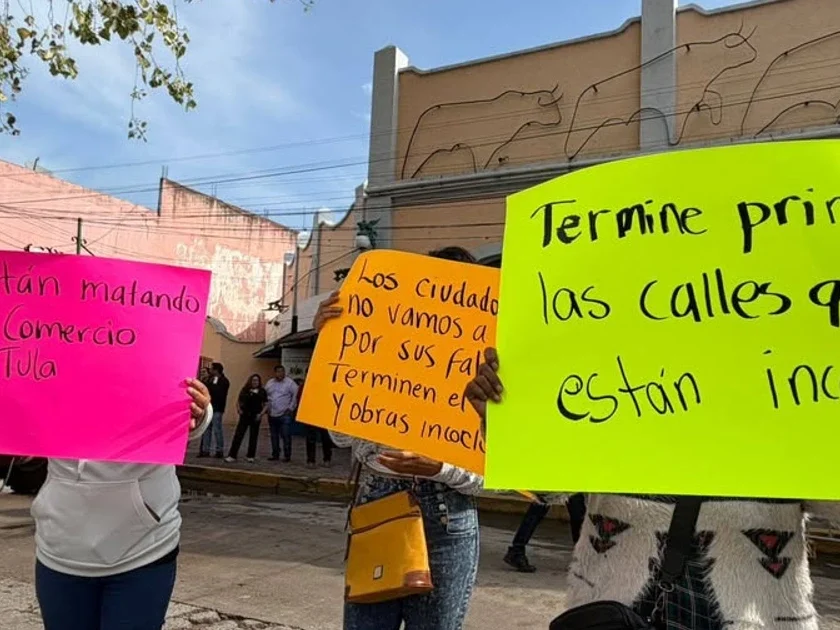 tán matando
Comercio
Tula
Los ciudado
no vamos a
por sus fal
Terminen el
Y obras inocl
Termine prim
las calles q
están inc